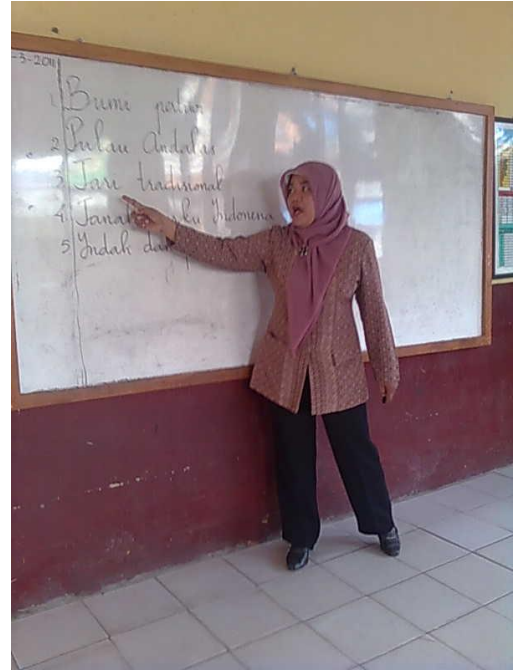 -3-2011
1 Bumi
2 Pulau Andalas
3 Tari tradisional
4. Tanah ku Indonena
5 Yndah da